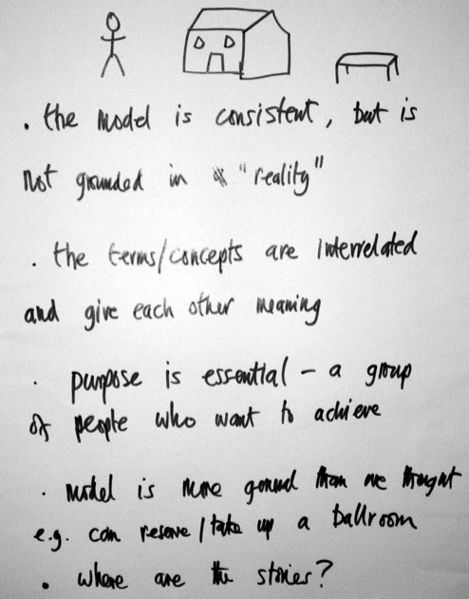 . the model is consistent, but is
not grounded in "reality"
. the terms/concepts are interrelated
and give each other meaning
. purpose is essential - a group
of people who want to achieve
. model is more general than we thought
e.g. can reserve/take up a ballroom
. where are the stories?